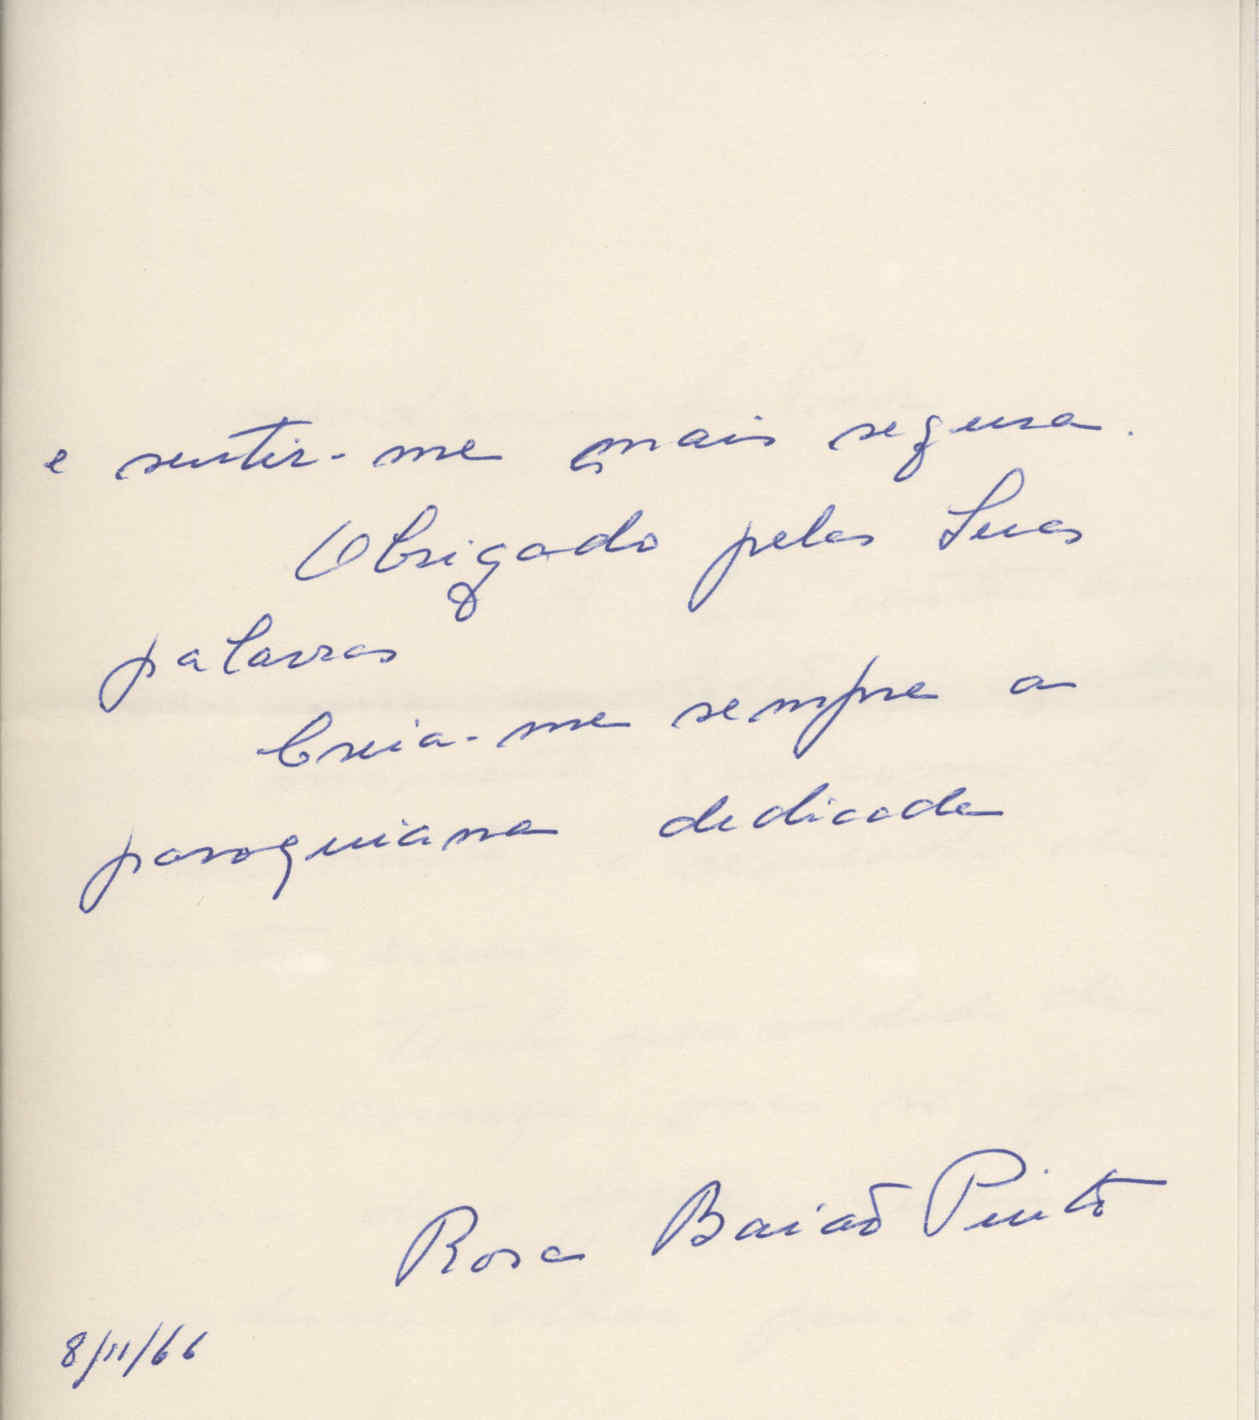 e sentir-me mais segura.
Obrigado pelas Suas
palavras
Creia-me sempre a
paroquiana dedicada
Rosa Baião Pinto
8/11/66